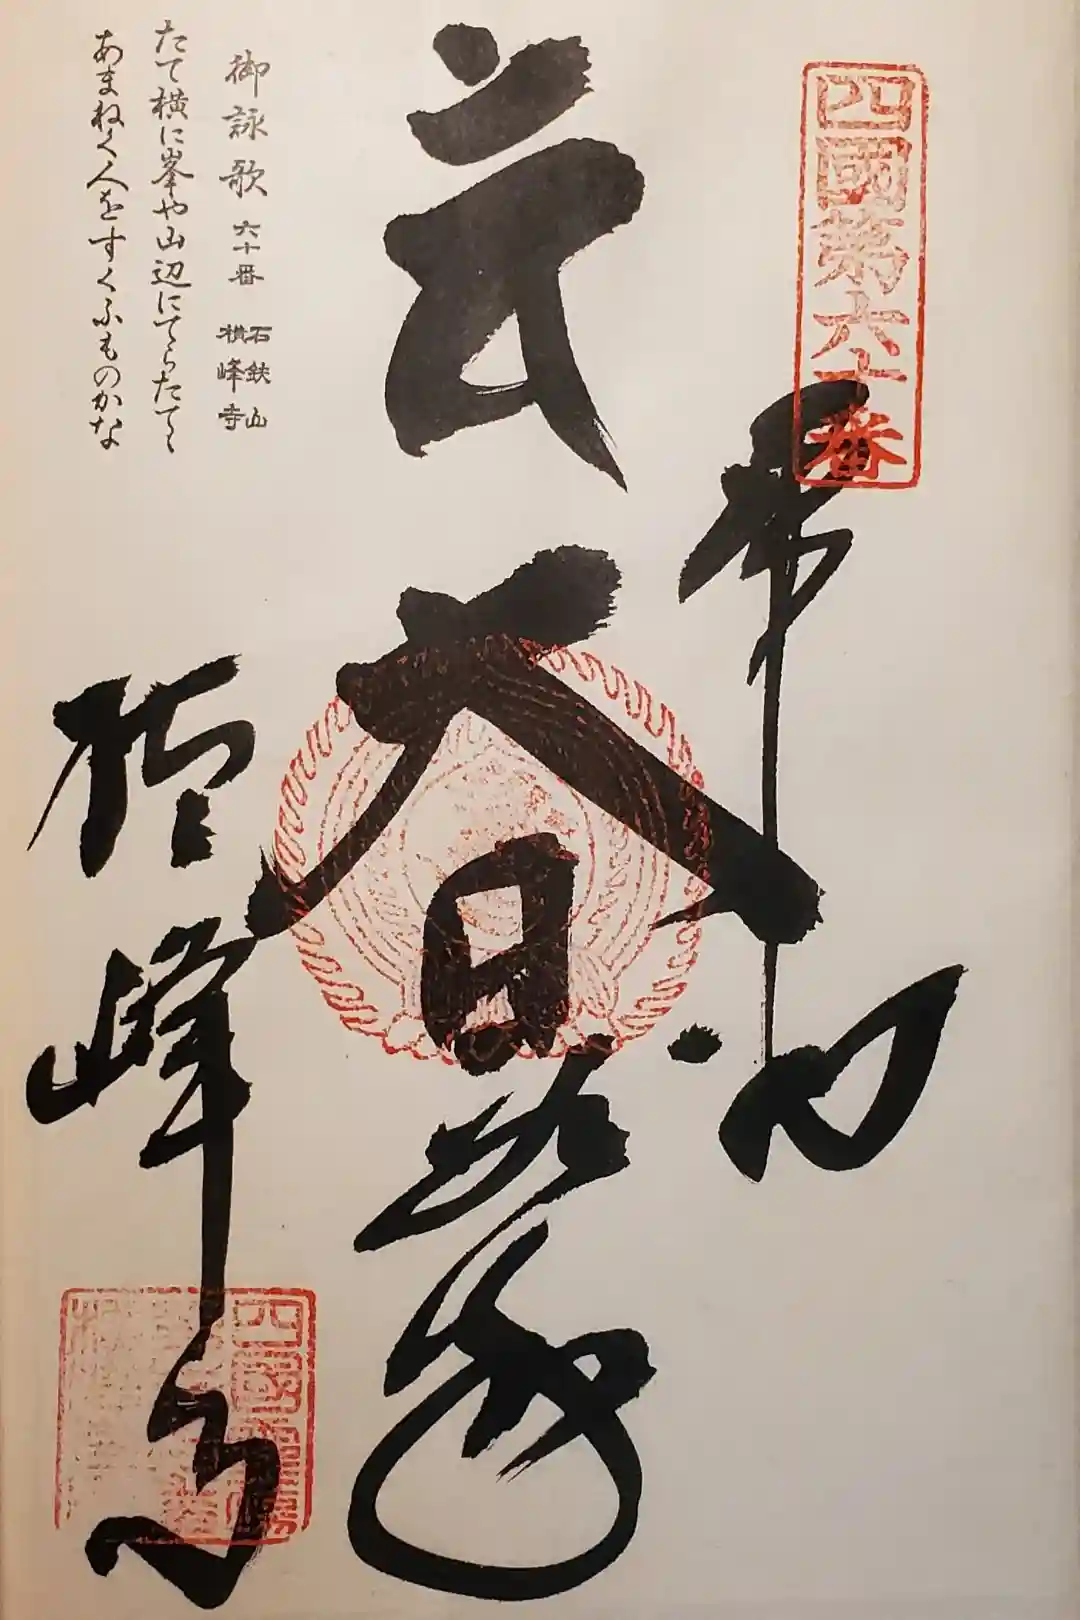 四國第六十番
奉納
大日如来
横峰寺
御詠歌 六十番 石鉄山 横峰寺
たて横に峯や山辺にてらたてゝ
あまねく人をすくふものかな